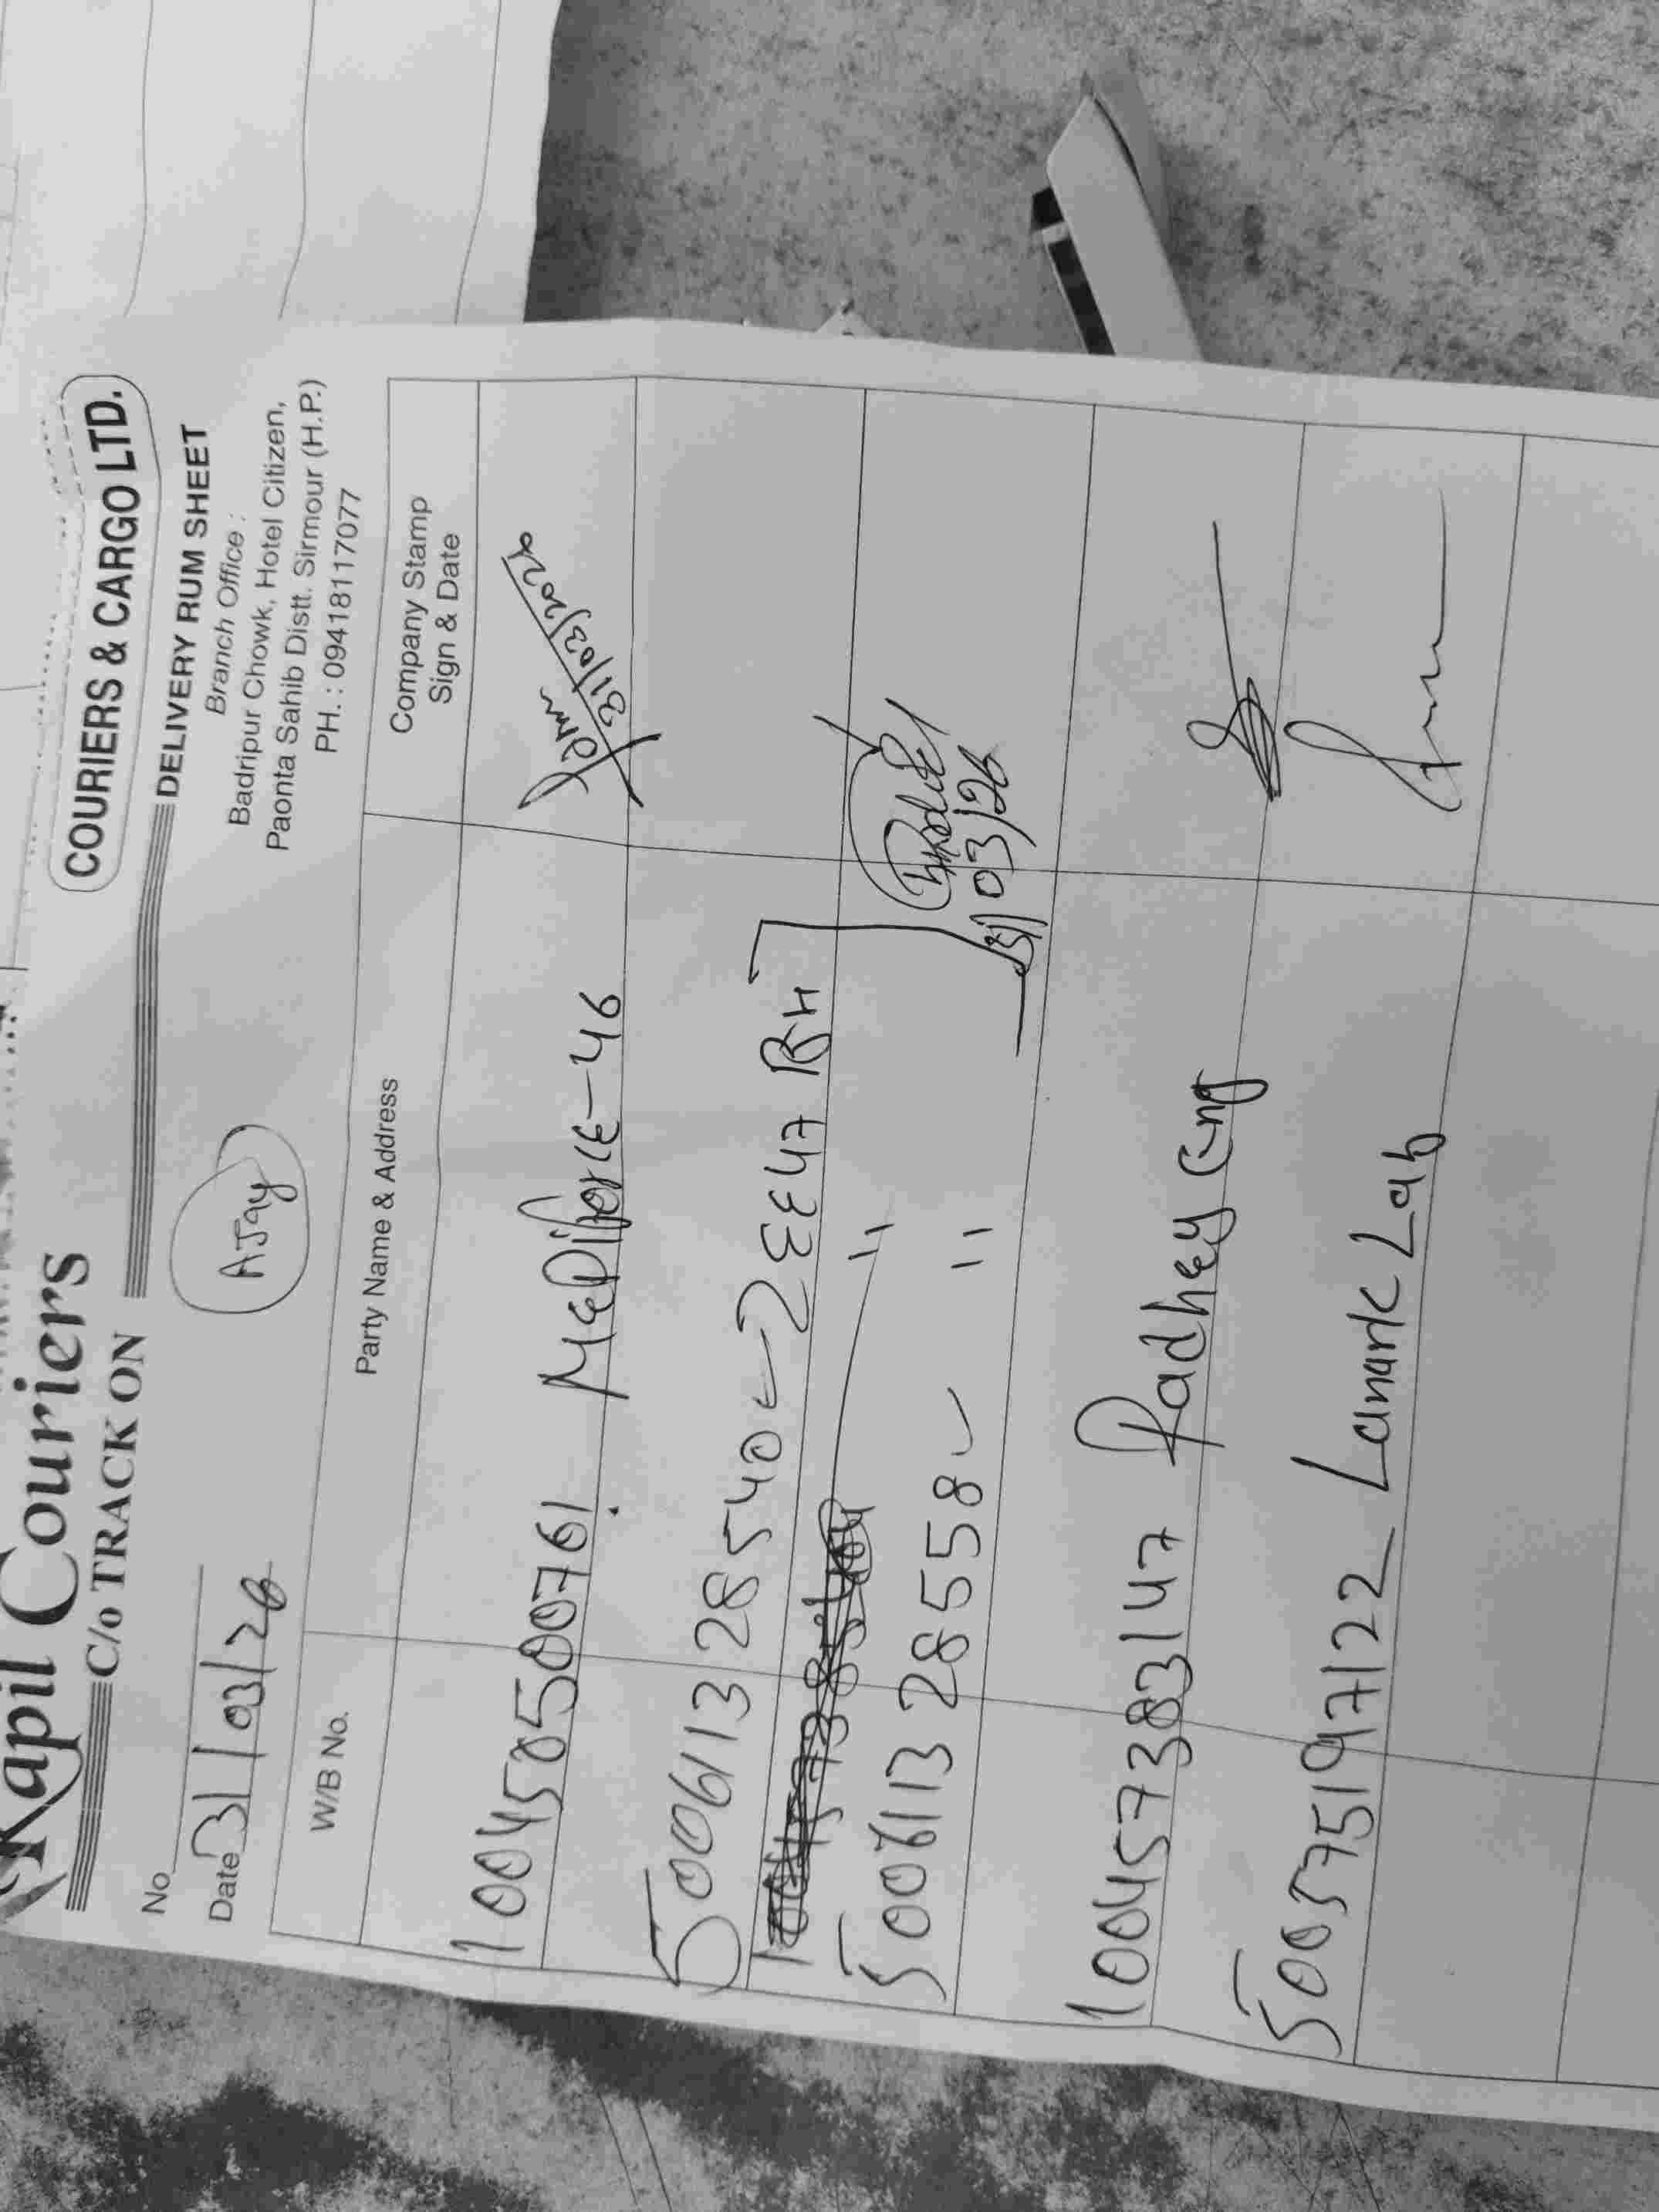 Kapil Couriers
C/o TRACK ON
COURIERS & CARGO LTD.
DELIVERY RUM SHEET
Branch Office :
Badripur Chowk, Hotel Citizen,
Paonta Sahib Distt. Sirmour (H.P.)
PH. : 09418117077
No
Date 31/03/26
AJay
W/B No. Party Name & Address Company Stamp Sign & Date
100450500761 MEDiforCE-46 31/03/2026
50061328540 2EE47 RH
50061328558 " " 31/03/26
100457383147 Radhey Eng
500575197122 Lanark Lab